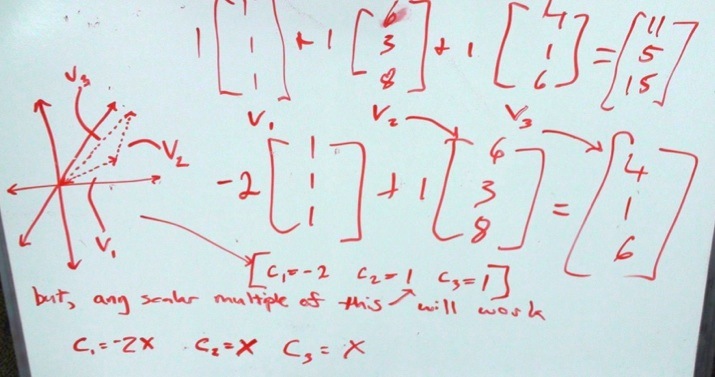 1 [1 1 1] + 1 [6 3 8] + 1 [4 1 6] = [11 5 15]
V3
V2
V1
V1 V2 V3
-2 [1 1 1] + 1 [6 3 8] = [4 1 6]
[C1=-2 C2=1 C3=1]
but, any scalar multiple of this will work
C1=-2x C2=x C3=x